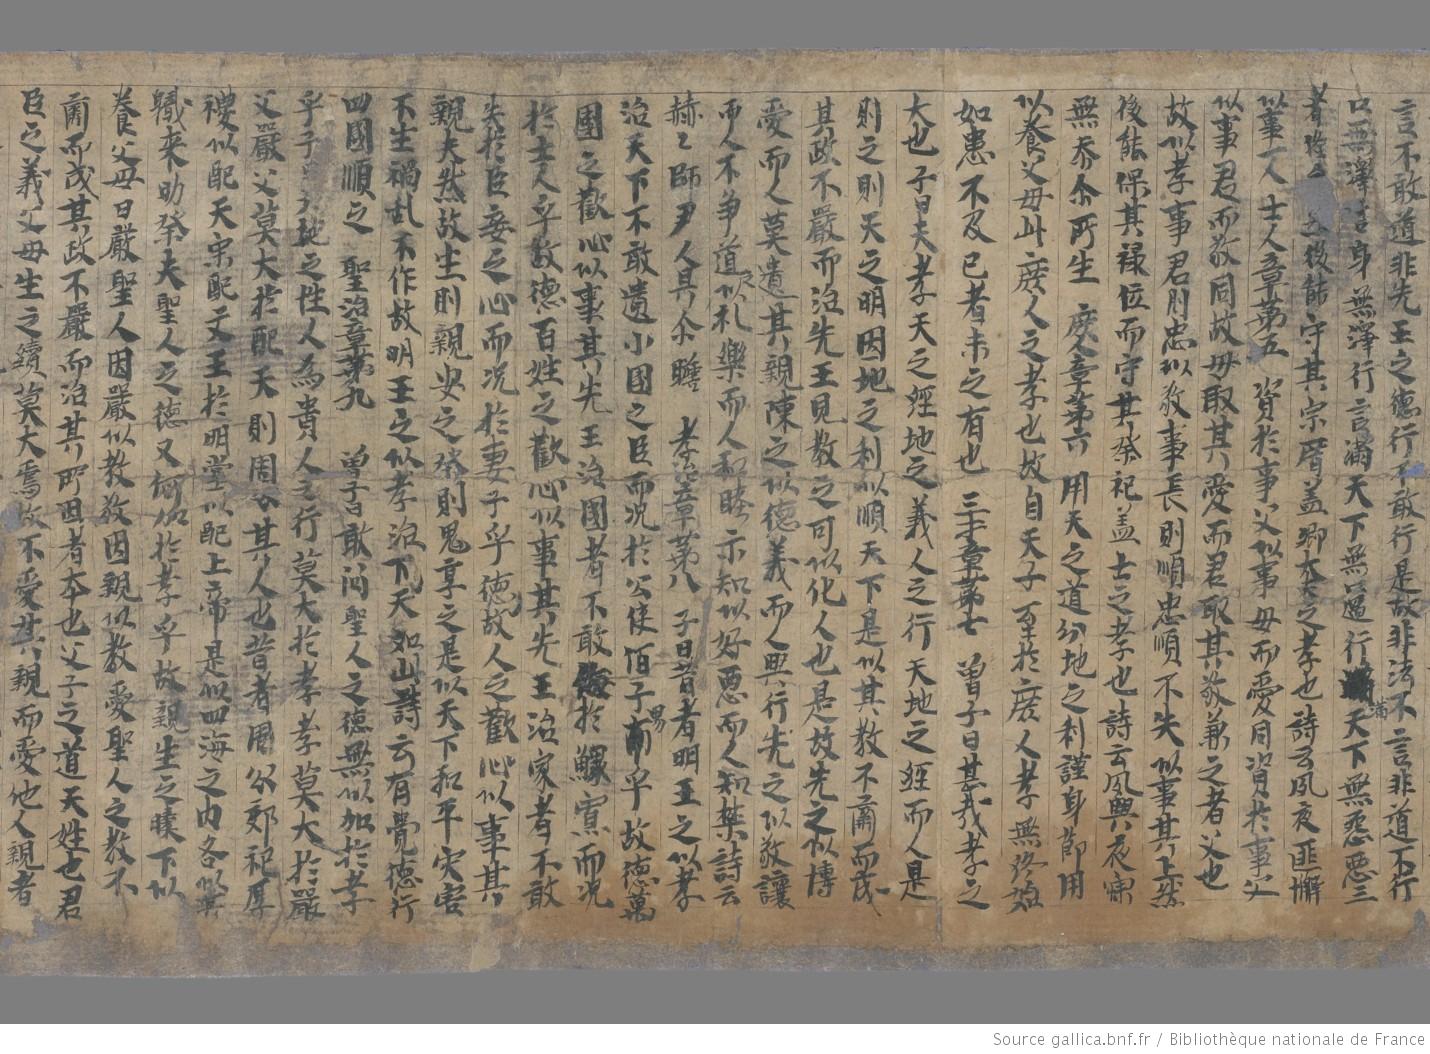 言不敢道非先王之德行不敢行是故非法不言非道不行
口無擇言身無澤行言滿天下無遥行滿天下無惡惡三
者俻 後能守其宗厝盖卿大夫之孝也詩云夙夜匪懈
以事一人 士人章第五 資於事父以事母而愛同資於事父
以事君而敬同故母取其愛而君取其敬兼之者父也
故以孝事君則忠以敬事長則順忠順不失以事其上然
後能保其禄位而守其祭祀盖士之孝也詩云夙興夜寐
無忝尒所生 庶人章第六 用天之道分地之利謹身節用
以養父母此庶人之孝也故自天子至於庶人孝無終始
如患不及已者未之有也 三才章第七 曽子曰甚哉孝之
大也子曰夫孝天之經地之義人之行天地之經而人是
則之則天之明因地之利以順天下是以其教不肅而茂
其政不嚴而治先王見教之可以化人也是故先之以博
愛而人莫遺其親陳之以德義而人興行先之以敬讓
而人不争道之以礼樂而人和睦示知以好惡而人知禁詩云
赫〻師尹人具尒瞻 孝治章第八 子曰昔者明王之以孝
治天下不敢遺小國之臣而况於公侯伯子男乎故德萬
國之歡心以事其先王治國者不敢侮於鰥寡而况
於士人乎故德百姓之歡心以事其先王治家者不敢
失於臣妾之心而况於妻子乎德故人之歡心以事其
親夫然故生則親安之祭則鬼享之是以天下和平灾害
不生禍乱不作故明王之以孝治天下如此詩云有覺德行
四國順之 聖治章第九 曽子曰敢问聖人之德無以加於孝
乎子曰天地之性人為貴人之行莫大於孝孝莫大於嚴
父嚴父莫大於配天則周公其人也昔者周公郊祀厚
禝以配天宗配文王於明堂以配上帝是以四海之内各以其
職来助祭夫聖人之德又何加於孝乎故親生之膝下以
養父母日嚴聖人因嚴以教敬因親以教愛聖人之教不
肅而茂其政不嚴而治其所因者夲也父子之道天姓也君
臣之義父母生之續莫大焉故不愛其親而愛他人親者